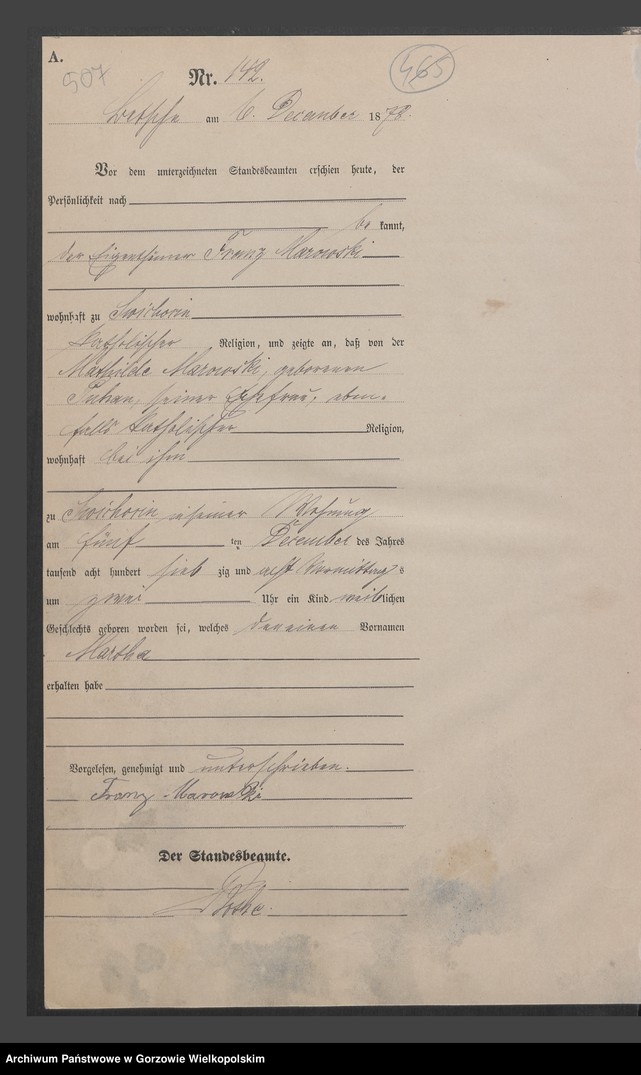 A.
507
465
Nr. 142.
Betsche am 6. December 1878.
Vor dem unterzeichneten Standesbeamten erschien heute, der
Persönlichkeit nach
be kannt,
der Eigenthümer Franz Marowski
wohnhaft zu Swichocin
katholischer Religion, und zeigte an, daß von der
Mathilde Marowski, geborenen
seiner Ehefrau, eben-
falls katholischer Religion,
wohnhaft bei ihm
zu Swichocin in seiner Wohnung
am fünf ten December des Jahres
tausend acht hundert sieb zig und acht Vormittags
um zwei Uhr ein Kind weiblichen
Geschlechts geboren worden sei, welches den einen Vornamen
Martha
erhalten habe
Vorgelesen, genehmigt und unterschrieben.
Franz Marowski
Der Standesbeamte.
Archiwum Państwowe w Gorzowie Wielkopolskim